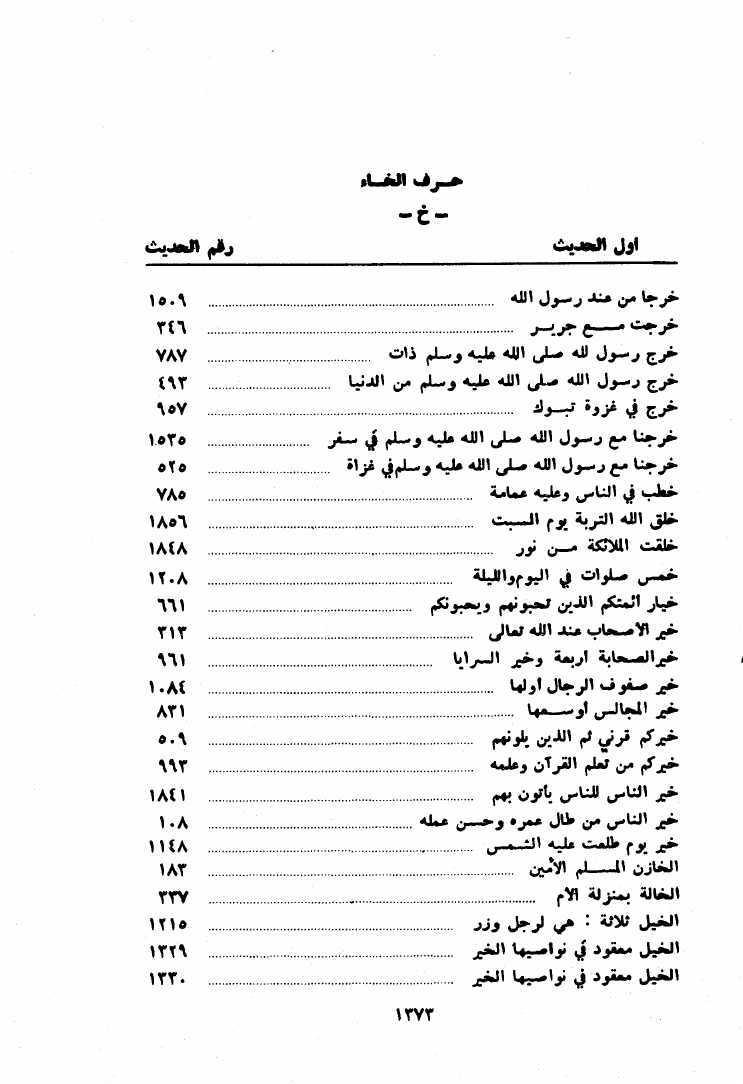 حرف الخاء
- خ -
أول الحديث رقم الحديث
خرجا من عند رسول الله ١٥٠٩
خرجت مع جرير ٣٤٦
خرج رسول لله صلى الله عليه وسلم ذات ٧٨٧
خرج رسول الله صلى الله عليه وسلم من الدنيا ٤٩٣
خرج في غزوة تبوك ٩٥٧
خرجنا مع رسول الله صلى الله عليه وسلم في سفر ١٠٣٥
خرجنا مع رسول الله صلى الله عليه وسلم في غزاة ٥٢٥
خطب في الناس وعليه عمامة ٧٨٥
خلق الله التربة يوم السبت ١٨٥٦
خلقت الملائكة من نور ١٨٤٨
خمس صلوات في اليوم والليلة ١٢٠٨
خيار أئمتكم الذين تحبونهم ويحبونكم ٦٦١
خير الأصحاب عند الله تعالى ٣١٣
خير الصحابة أربعة وخير السرايا ٩٦١
خير صفوف الرجال أولها ١٠٨٤
خير المجالس أوسعها ٨٣١
خيركم قرني ثم الذين يلونهم ٥٠٩
خيركم من تعلم القرآن وعلمه ٩٩٣
خير الناس للناس يأتون بهم ١٨٤١
خير الناس من طال عمره وحسن عمله ١٠٨
خير يوم طلعت عليه الشمس ١١٤٨
الخازن المسلم الأمين ١٨٣
الخالة بمنزلة الأم ٣٣٧
الخيل ثلاثة : هي لرجل وزر ١٢١٥
الخيل معقود في نواصيها الخير ١٣٢٩
الخيل معقود في نواصيها الخير ١٣٣٠
١٣٧٣